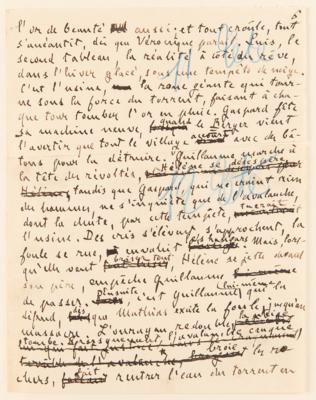 5
l'or de beauté aussi: et tout croule, tout
s'anéantit, dès que Véronique paraît. Puis, le
second tableau, la réalité à côté du rêve,
dans l'hiver glacé, sous une tempête de neige.
C'est l'usine, la roue géante qui tour-
ne sous la force du torrent, faisant à cha-
que tour tomber l'or en pluie. Gaspard fête
sa machine neuve, quand le Berger vient
l'avertir que tout le village accourt avec de bâ-
tons pour la détruire. Guillaume marche à
la tête des révoltés, Hélène se désespère
tandis que Gaspard, qui ne craint rien
des hommes, ne s'inquiète que de l'avalanche,
dont la chute, par cette tempête,
l'usine. Des cris s'élèvent, s'approchent, la
foule se rue, envahit Mais, lors-
qu'elle veut briser tout, Hélène se jette devant
son père, empêche Guillaume
de passer. ensuite, c'est Guillaume qui lui-même la
défend, dès que Mathias excite la foule, jusqu'au
massacre. L'ouragan redouble,
brusquement, l'avalanche
broie les ro-
chers, fait rentrer l'eau du torrent en